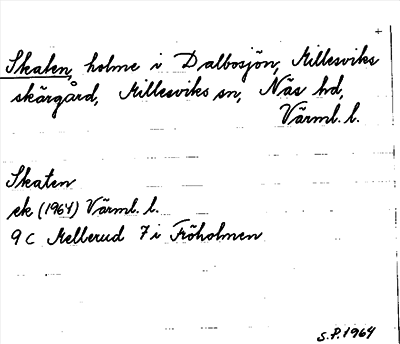 +
Skaten, holme i Dalbosjön, Millesviks
skärgård, Millesviks sn, Näs hd,
Värml. l.
Skaten
ek (1964) Värml. l.
9 C Mellerud 7 i Fröholmen
S.P. 1964